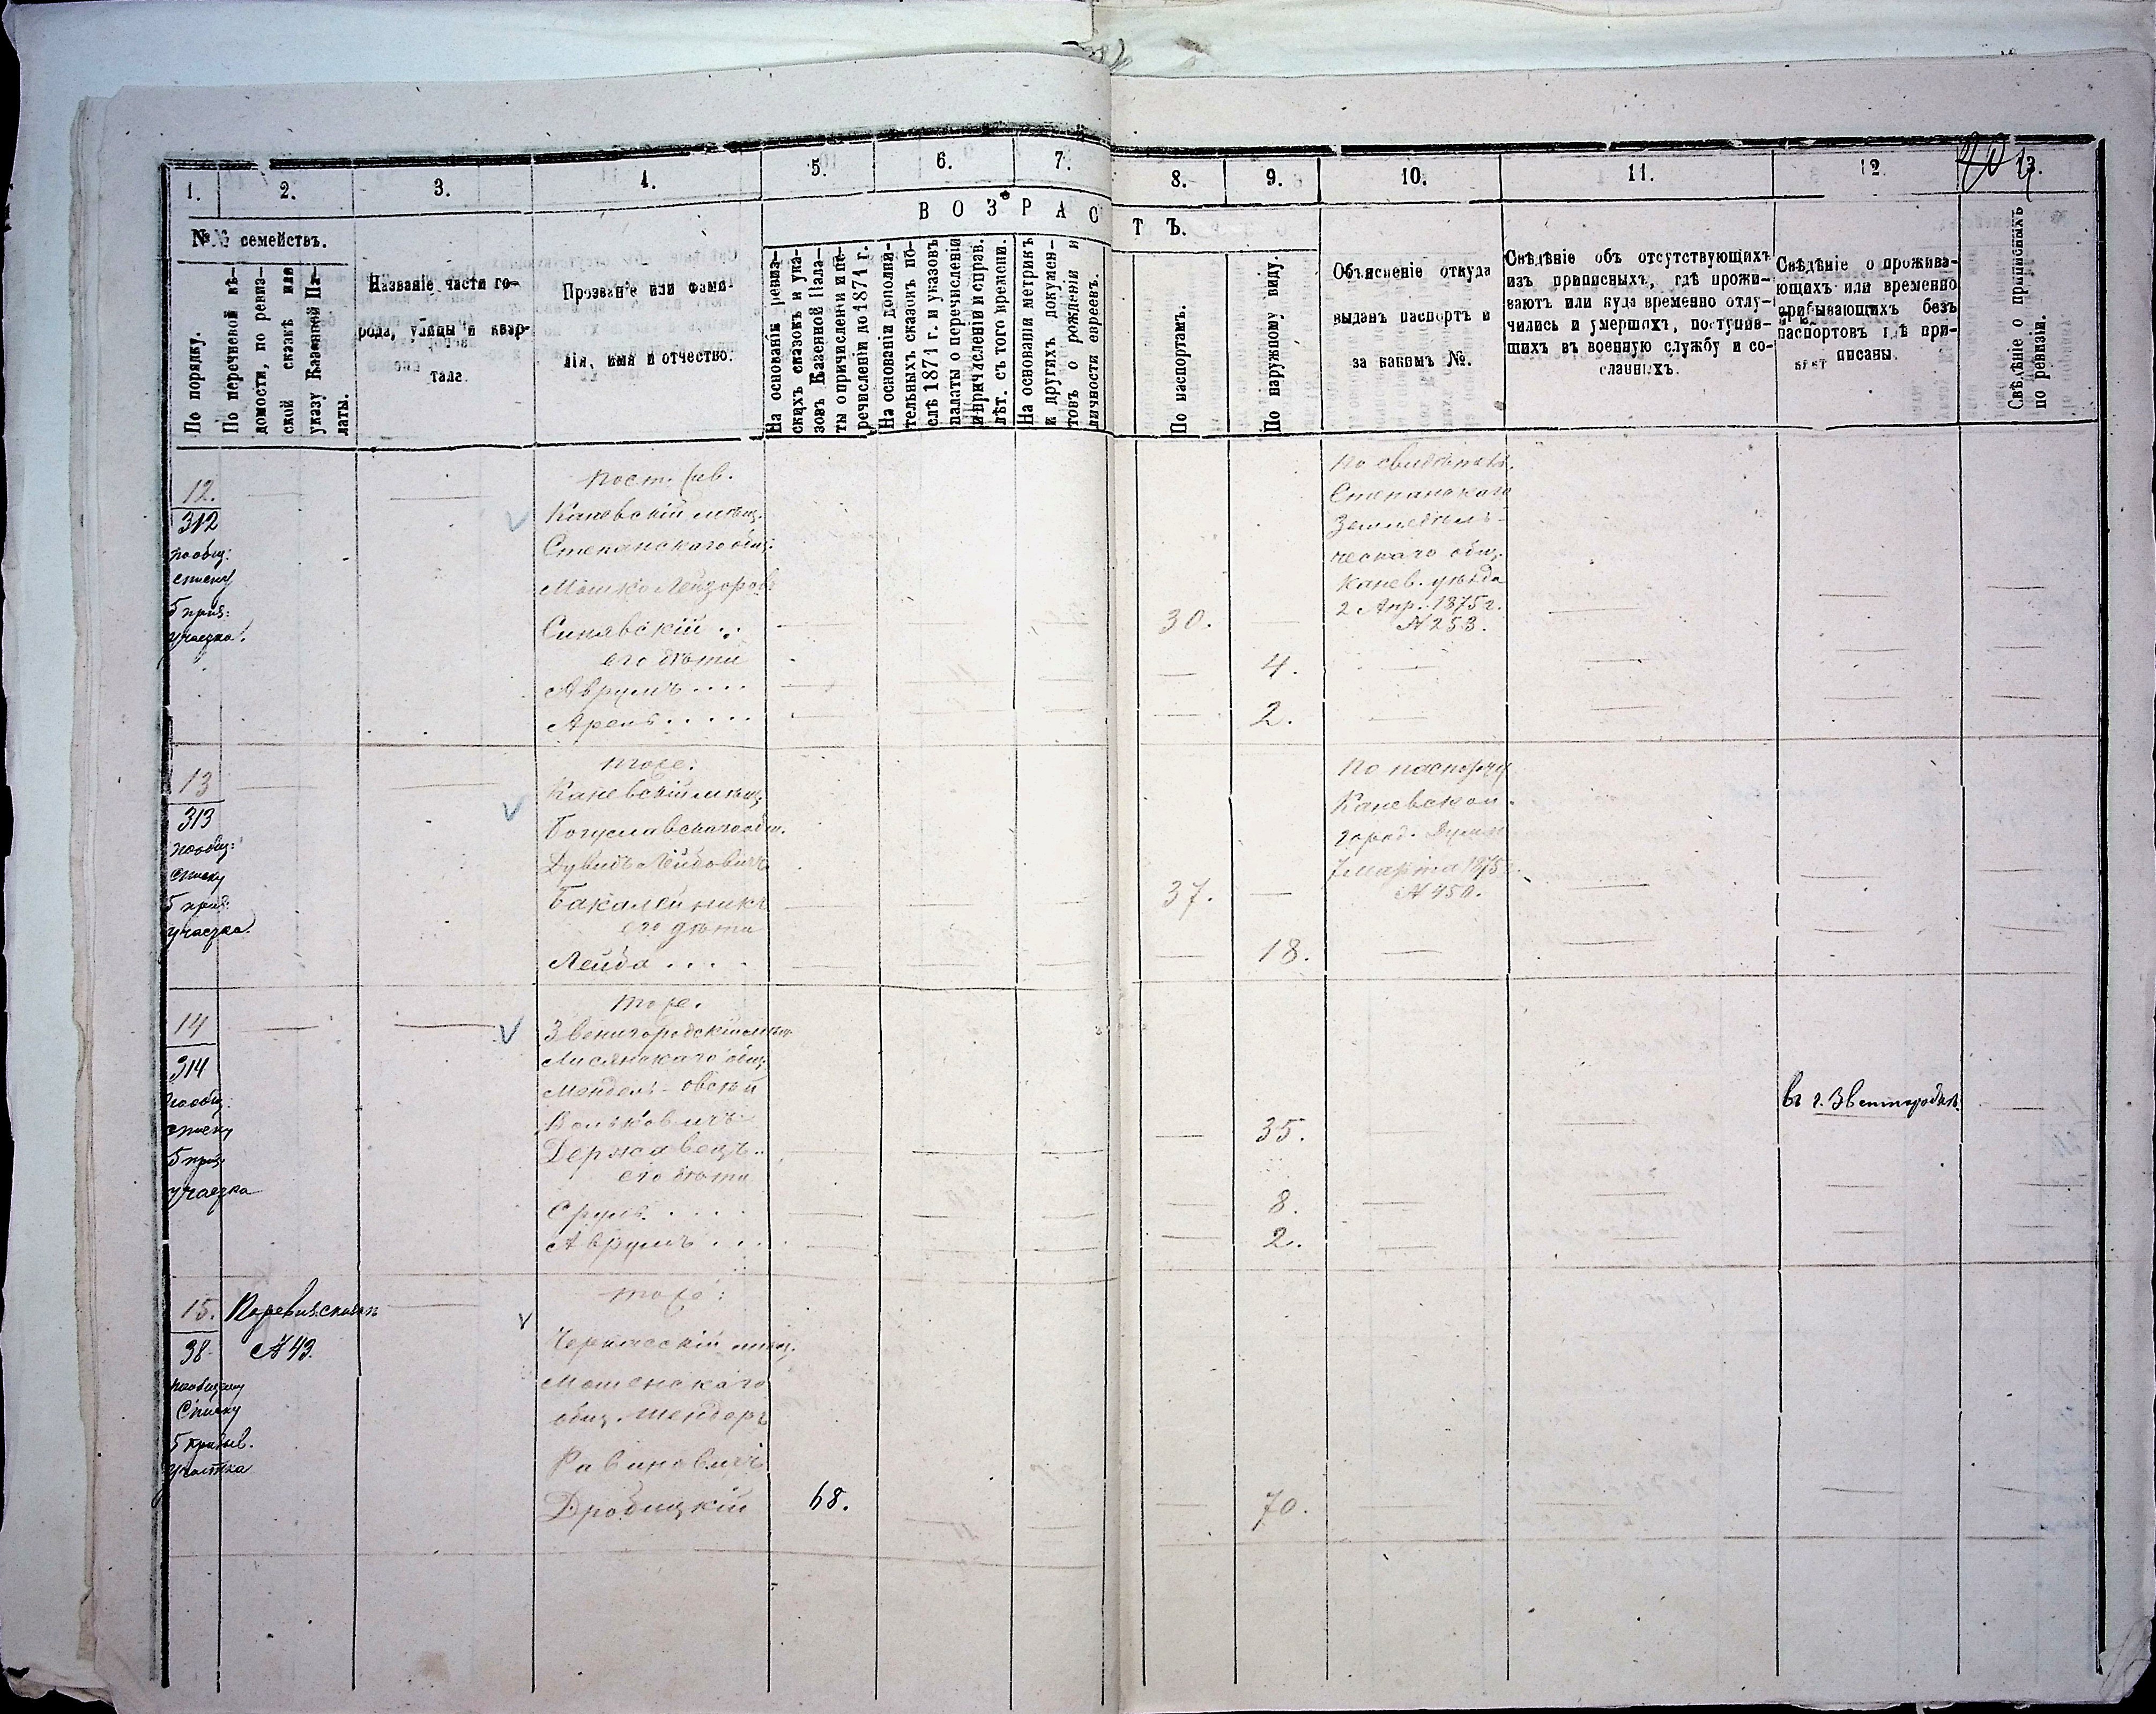 1. 2. 3. 4. 5. 6. 7. 8. 9. 10. 11. 12. 13.
№№ семействъ.
По порядку.
По перечневой вѣ-
домости, по ревиз-
ской сказкѣ или
указу Казенной Па-
латы.
Названіе части го-
рода, улицы и квар-
тала.
Прозваніе или фами-
лія, имя и отчество.
ВОЗРАСТЪ.
На основаніи ревиз-
скихъ сказокъ и ука-
зовъ Казенной Пала-
ты о причисленіи и пе-
речисленіи до 1871 г.
На основаніи дополни-
тельныхъ сказокъ по-
слѣ 1871 г. и указовъ
палаты о перечисленіи
и причисленіи и справ.
лѣт. съ того времени.
На основаніи метрикъ
и другихъ докумен-
товъ о рожденіи и
личности евреевъ.
По паспортамъ.
По наружному виду.
Объясненіе откуда
выданъ паспортъ и
за какимъ №.
Свѣдѣніе объ отсутствующихъ
изъ приписныхъ, гдѣ прожи-
ваютъ или куда временно отлу-
чились и умершихъ, поступив-
шихъ въ военную службу и со-
сланныхъ.
Свѣдѣніе о прожива-
ющихъ или временно
прибывающихъ безъ
паспортовъ гдѣ при-
писаны.
Свѣдѣніе о приписныхъ
по ревизіи.
12.
312
по общ:
списку
5 приз:
участка.
Каневскій мѣщ.
Степанскаго общ:
Мошко Лейзоровъ
Синявскій .. 30.
его дѣти
Аврумъ .... 4.
Арель ..... 2.
По свидѣтел.
Степанскаго
Земледѣль-
ческаго общ.
Канев. уѣзда
2 Апр. 1875 г.
№ 253.
13
313
по общ:
списку
5 приз:
участка.
тоже:
Каневскій мѣщ.
Богуславскаго общ.
Дувидъ Лейбовичъ
Бакалейникъ 37.
его дѣти
Лейба .... 18.
По паспорту
Каневской
город. Думы
7 Марта 1875 г.
№ 450.
14
314
по общ:
списку
5 приз.
участка
тоже.
Звенигородскій мѣщ.
Лисянскаго общ.
Мендель-Овсѣй
Вольковичъ
Державецъ.. 35.
его дѣти
Сруль .... 8.
Аврумъ .... 2.
въ г. Звенигородкѣ.
15.
38.
по общему
списку
5 призыв.
участка
По ревиз. сказкѣ
№ 43.
тоже:
Черкасскій мѣщ.
Мошенскаго
общ. Шендеръ
Рабиновичъ
Дробицкій 68. 70.